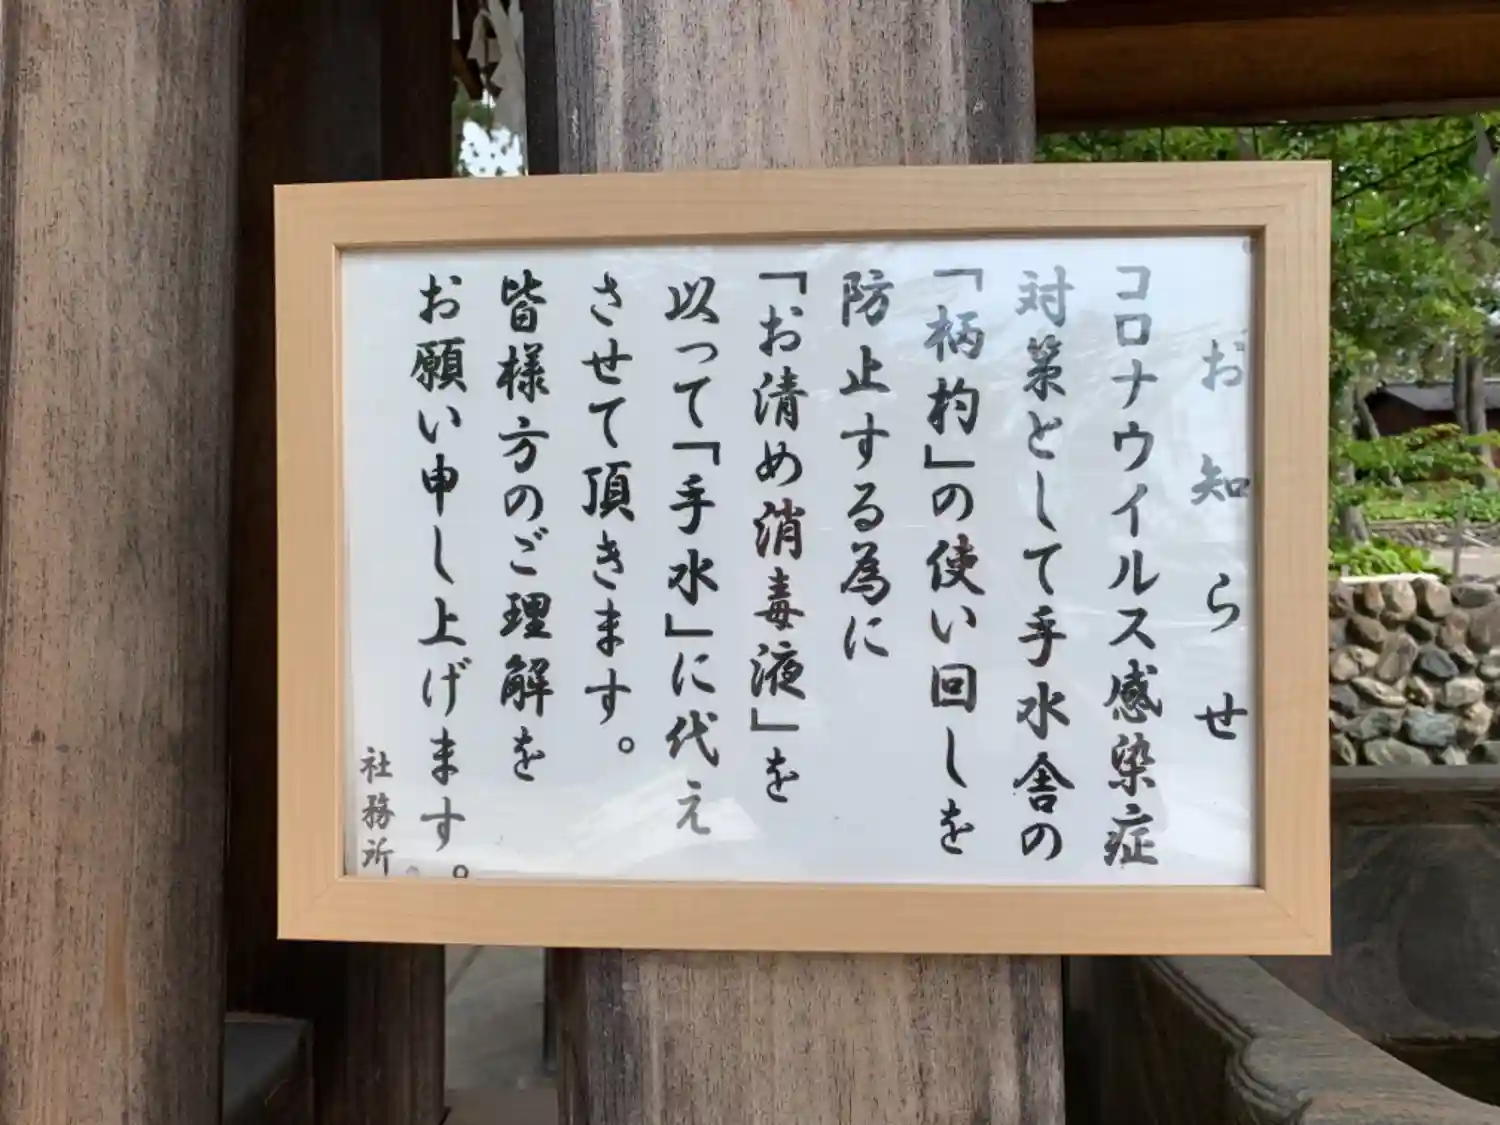 お知らせ
コロナウイルス感染症
対策として手水舎の
「柄杓」の使い回しを
防止する為に
「お清め消毒液」を
以って「手水」に代え
させて頂きます。
皆様方のご理解を
お願い申し上げます。
社務所